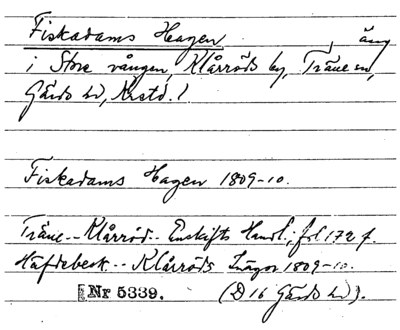 Fiskadams Hagen, äng
i Store vången, Klårröds by, Träne sn,
Gärds hd, Krstd. l
Fiskadams Hagen 1809-10.
Träne -- Klårröd -- Enskifts Handl., fol 172 f.
Häfdebeskr -- Klårröds Inägor 1809-10.
Nr 5339. (D 16 Gärds hd).